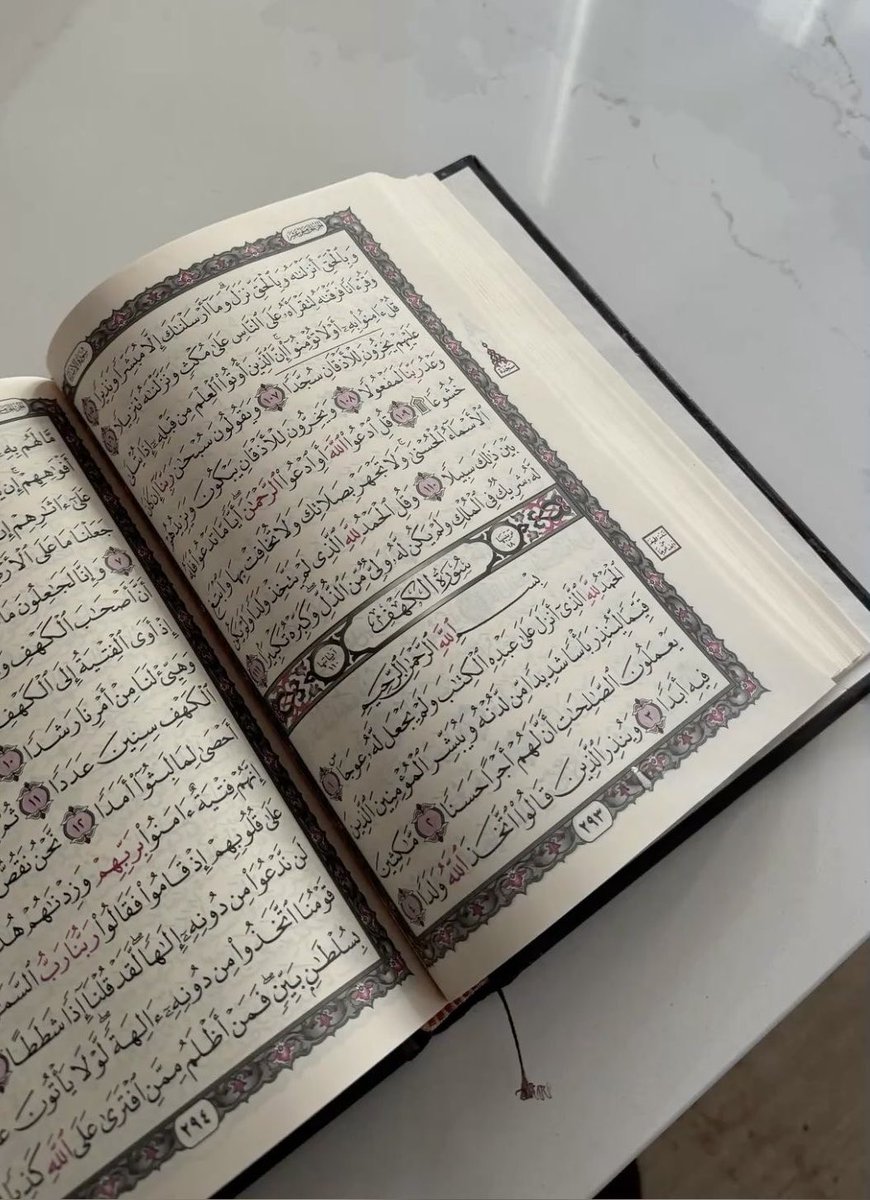 وَبِٱلْحَقِّ أَنزَلْنَٰهُ وَبِٱلْحَقِّ نَزَلَ ۗ وَمَآ أَرْسَلْنَٰكَ إِلَّا مُبَشِّرًا وَنَذِيرًا ١٠٥
وَقُرْءَانًا فَرَقْنَٰهُ لِتَقْرَأَهُۥ عَلَى ٱلنَّاسِ عَلَىٰ مُكْثٍ وَنَزَّلْنَٰهُ تَنزِيلًا ١٠٦
قُلْ ءَامِنُوا۟ بِهِۦٓ أَوْ لَا تُؤْمِنُوٓا۟ ۚ إِنَّ ٱلَّذِينَ أُوتُوا۟ ٱلْعِلْمَ مِن قَبْلِهِۦٓ إِذَا يُتْلَىٰ
عَلَيْهِمْ يَخِرُّونَ لِلْأَذْقَانِ سُجَّدًا ١٠٧ وَيَقُولُونَ سُبْحَٰنَ رَبِّنَآ إِن كَانَ
وَعْدُ رَبِّنَا لَمَفْعُولًا ١٠٨ وَيَخِرُّونَ لِلْأَذْقَانِ يَبْكُونَ وَيَزِيدُهُمْ
خُشُوعًا ۩ ١٠٩ قُلِ ٱدْعُوا۟ ٱللَّهَ أَوِ ٱدْعُوا۟ ٱلرَّحْمَٰنَ ۖ أَيًّا مَّا تَدْعُوا۟ فَلَهُ
ٱلْأَسْمَآءُ ٱلْحُسْنَىٰ ۚ وَلَا تَجْهَرْ بِصَلَاتِكَ وَلَا تُخَافِتْ بِهَا وَٱبْتَغِ
بَيْنَ ذَٰلِكَ سَبِيلًا ١١٠ وَقُلِ ٱلْحَمْدُ لِلَّهِ ٱلَّذِى لَمْ يَتَّخِذْ وَلَدًا وَلَمْ يَكُن
لَّهُۥ شَرِيكٌ فِى ٱلْمُلْكِ وَلَمْ يَكُن لَّهُۥ وَلِىٌّ مِّنَ ٱلذُّلِّ ۖ وَكَبِّرْهُ تَكْبِيرًۢا ١١١
سُورَةُ الكَهْفِ
بِسْمِ ٱللَّهِ ٱلرَّحْمَٰنِ ٱلرَّحِيمِ
ٱلْحَمْدُ لِلَّهِ ٱلَّذِىٓ أَنزَلَ عَلَىٰ عَبْدِهِ ٱلْكِتَٰبَ وَلَمْ يَجْعَل لَّهُۥ عِوَجَا ۜ ١
قَيِّمًا لِّيُنذِرَ بَأْسًا شَدِيدًا مِّن لَّدُنْهُ وَيُبَشِّرَ ٱلْمُؤْمِنِينَ ٱلَّذِينَ
يَعْمَلُونَ ٱلصَّٰلِحَٰتِ أَنَّ لَهُمْ أَجْرًا حَسَنًا ٢ مَّٰكِثِينَ
فِيهِ أَبَدًا ٣ وَيُنذِرَ ٱلَّذِينَ قَالُوا۟ ٱتَّخَذَ ٱللَّهُ وَلَدًا ٤
٢٩٣
مَّا لَهُم بِهِۦ
أَفْوَٰهِهِمْ ۚ إِن
عَلَىٰٓ ءَاثَٰرِهِمْ إِن
جَعَلْنَا مَا عَلَى ٱلْأَرْضِ
٧ وَإِنَّا لَجَٰعِلُونَ مَا
أَنَّ أَصْحَٰبَ ٱلْكَهْفِ
إِذْ أَوَى ٱلْفِتْيَةُ إِلَى ٱلْكَهْفِ
وَهَيِّئْ لَنَا مِنْ أَمْرِنَا رَشَدًا ١٠
ٱلْكَهْفِ سِنِينَ عَدَدًا ١١ ثُمَّ
أَحْصَىٰ لِمَا لَبِثُوٓا۟ أَمَدًا ١٢ نَّحْنُ نَقُصُّ
إِنَّهُمْ فِتْيَةٌ ءَامَنُوا۟ بِرَبِّهِمْ وَزِدْنَٰهُمْ هُدًى
عَلَىٰ قُلُوبِهِمْ إِذْ قَامُوا۟ فَقَالُوا۟ رَبُّنَا رَبُّ ٱلسَّمَٰ
لَن نَّدْعُوَا۟ مِن دُونِهِۦٓ إِلَٰهًا ۖ لَّقَدْ قُلْنَآ إِذًا شَطَطًا
قَوْمُنَا ٱتَّخَذُوا۟ مِن دُونِهِۦٓ ءَالِهَةً ۖ لَّوْلَا يَأْتُونَ
بِسُلْطَٰنٍۭ بَيِّنٍ ۖ فَمَنْ أَظْلَمُ مِمَّنِ ٱفْتَرَىٰ عَلَى ٱللَّهِ كَذِبًا
٢٩٤